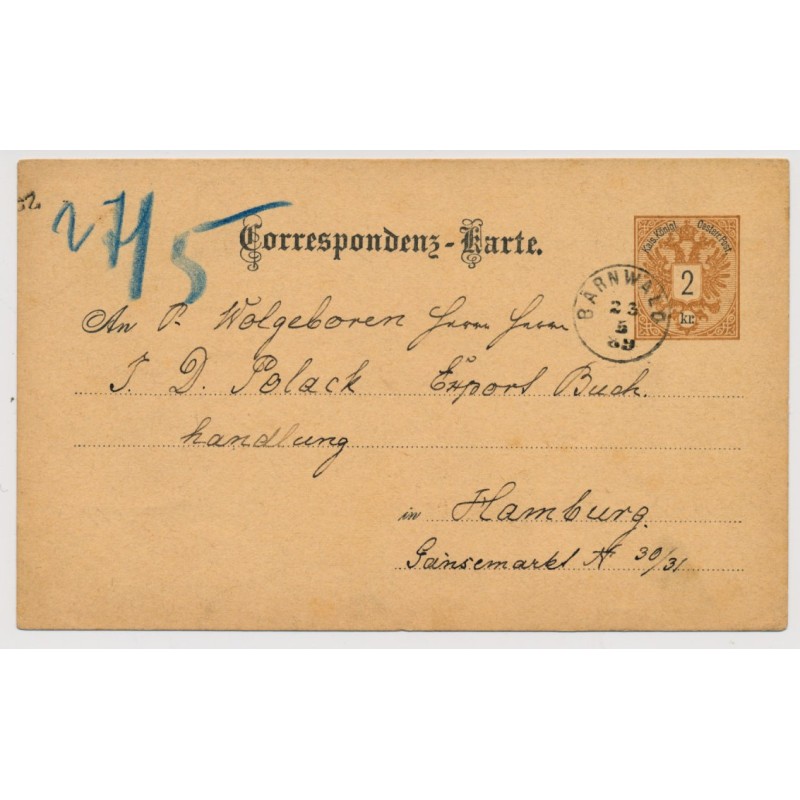 27/5
Correspondenz-Karte.
Kais. Königl. Oesterr. Post.
2
kr.
BÄRNWALD
23
5
89
An P. Wolgeboren Herrn Herrn
J. D. Polack Export Buch.
handlung
in Hamburg.
Gänsemarkt N 30/31